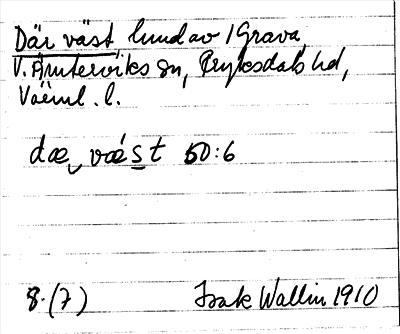 Där väst hund av /Grava
V. Ämterviks sn, Fryksdals hd,
Värml. l.
dæ væst 50:6
8. (7) Isak Wallin 1910